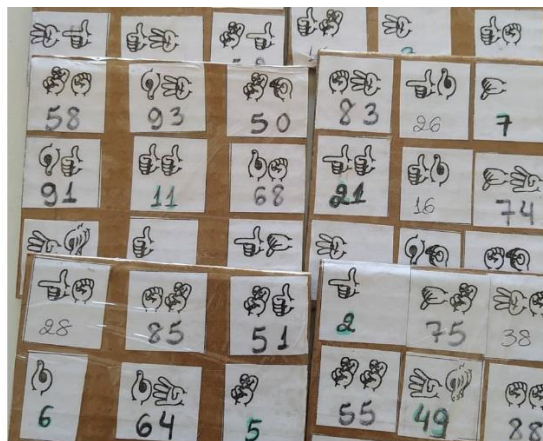 58 93 50
91 11 68
83 26 7
21 16 74
28 85 51
6 64 5
2 75 38
55 49 88